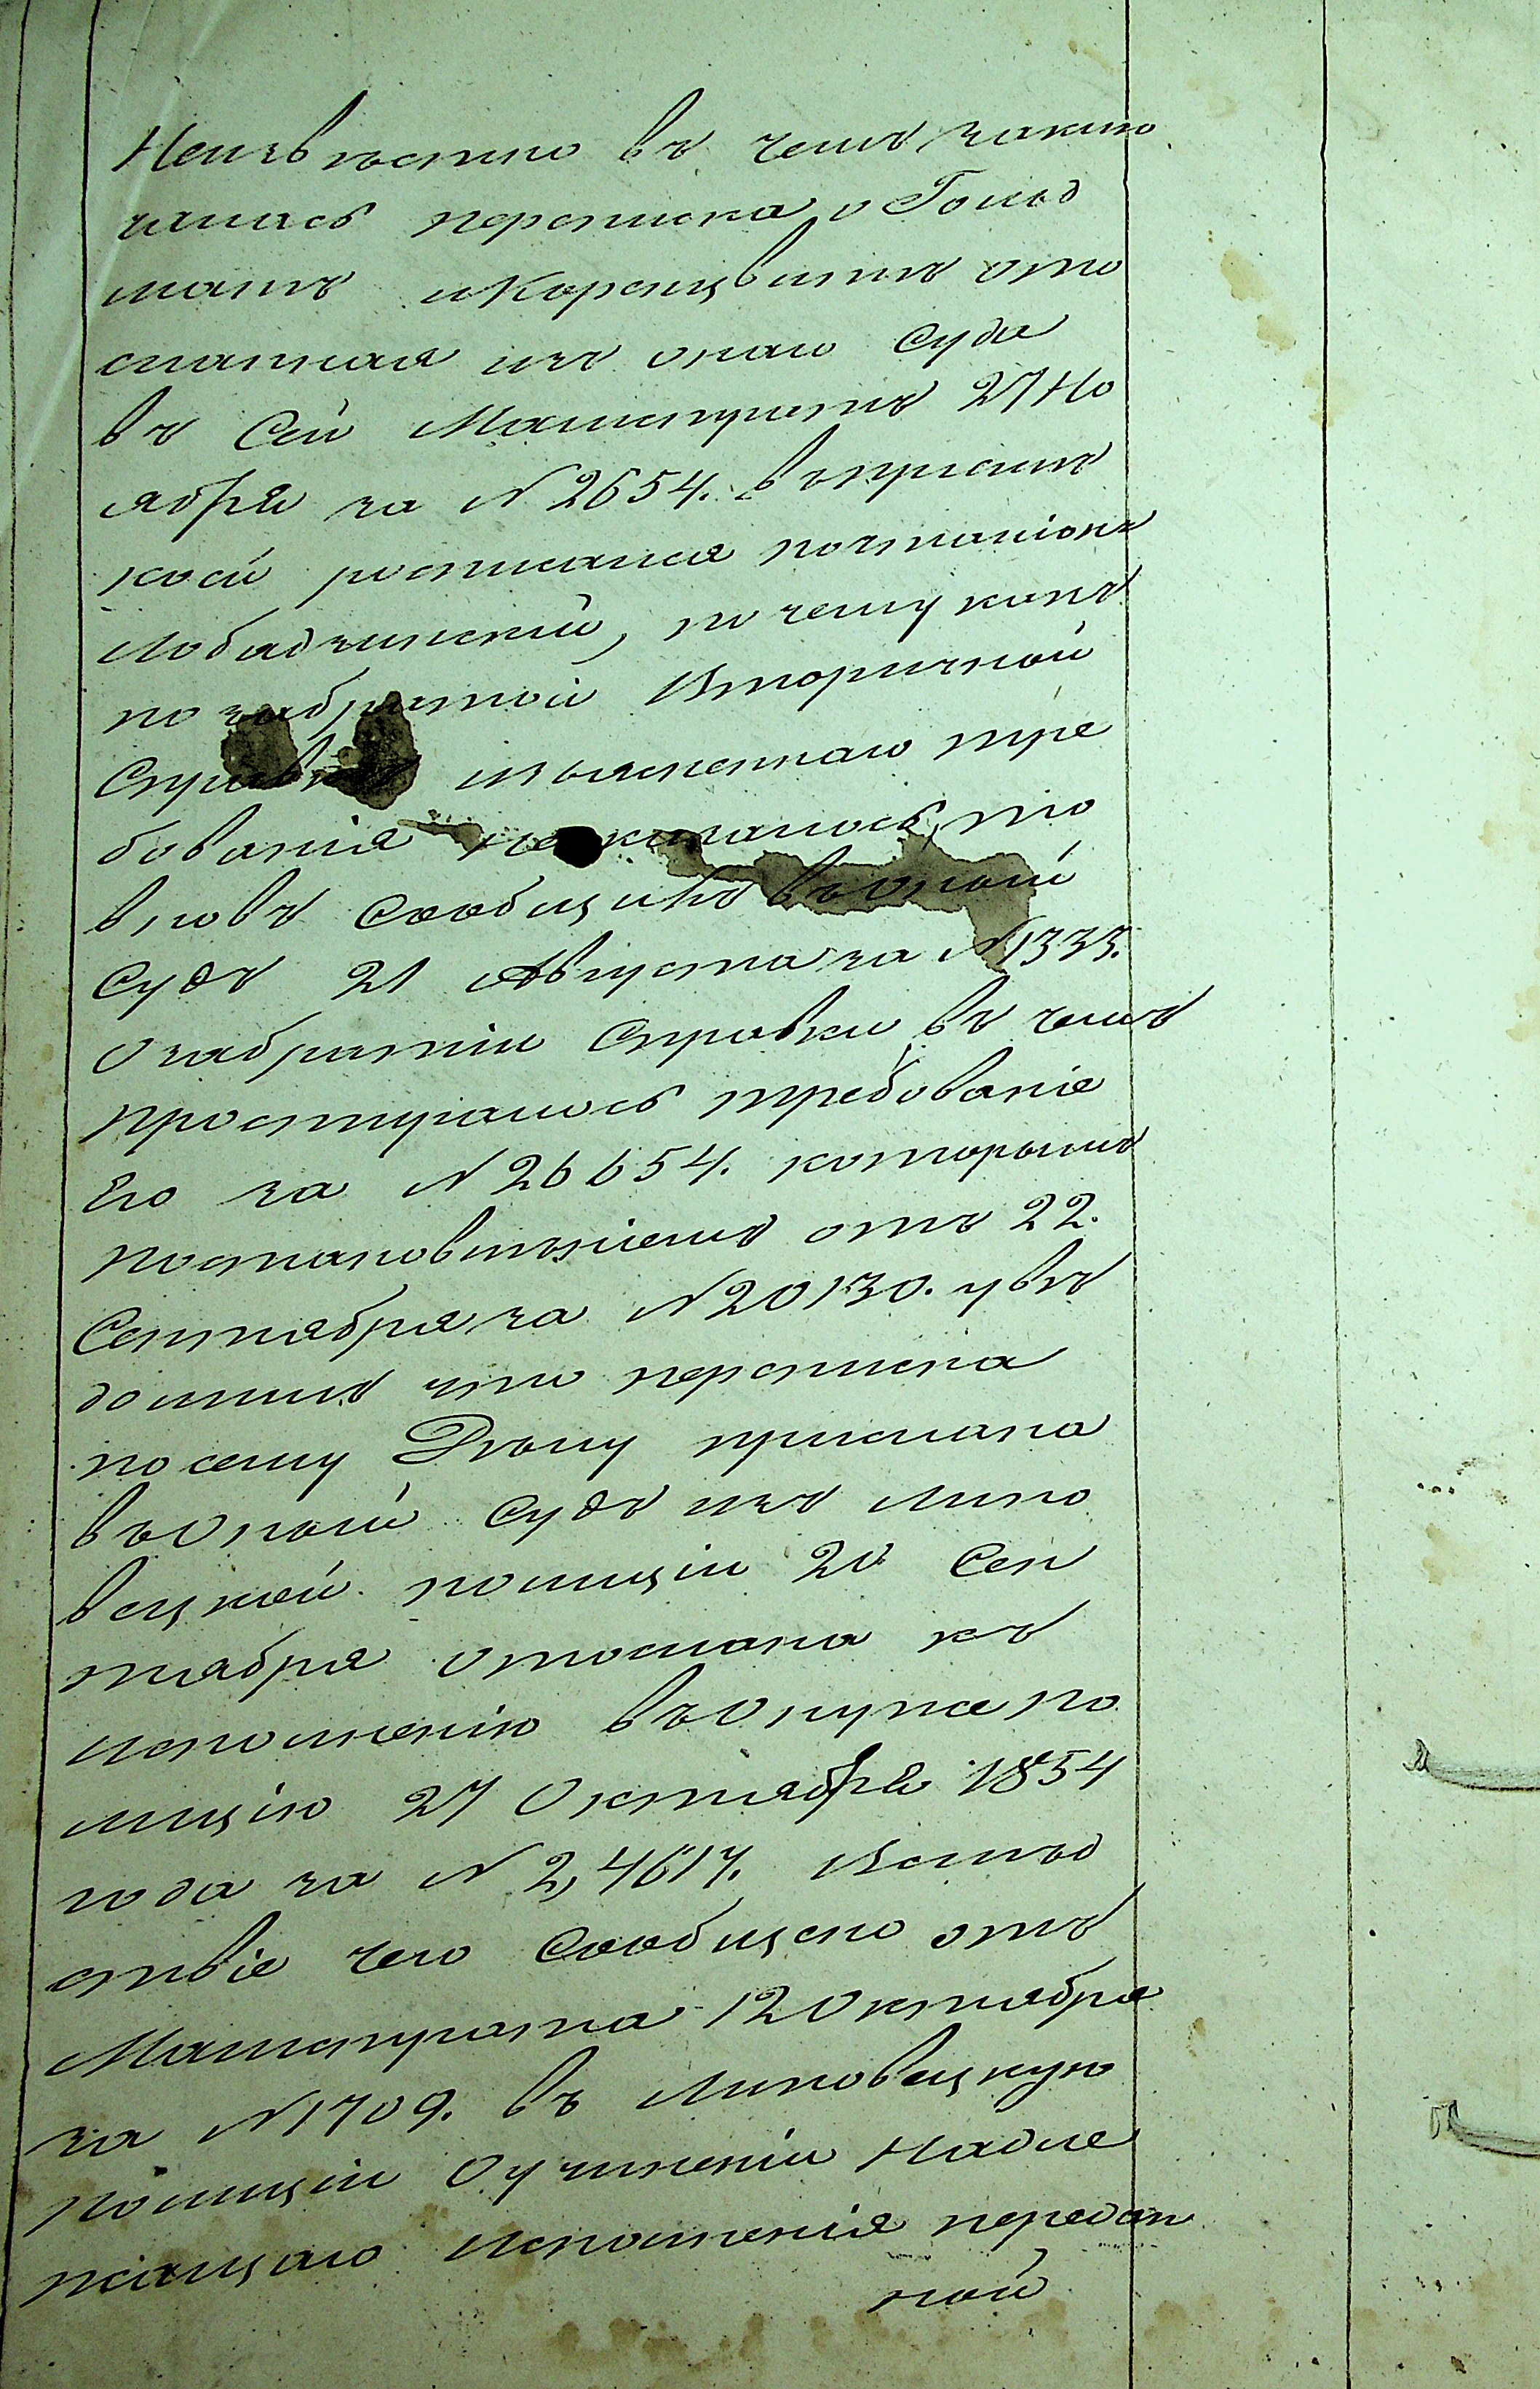 Неизвѣстно въ чемъ заклю
чилась переписка о Гольд
манъ и Корецвитъ ото
сланная изъ онаго Суда
въ Сей Магистратъ 27 Но
ября за N 2654. въ пріемѣ
коей росписался почталіонъ
Лободзинскій, почему какъ
по забранной вторичной
Справкѣ изъясненнаго тре
бованія не оказалось, то
вновь Сообщить въ Оный
Судъ 21 Августа за N 1333.
о забраніи Справки въ чемъ
простиралось требованіе
Его за N 26654. которымъ
постановленіемъ отъ 22.
Сентября за N 20130. увѣ
домилъ что переписка
по сему Дѣлу прислана
въ Оный Судъ изъ Липо
вецкой полиціи 20 Сен
тября отослана къ
исполненію въ Онуже по
лицію 27 Октября 1854
года за N 2,4617. Вслѣд
ствіе чего Сообщено отъ
Магистрата 12 Октября
за N 1709. въ Липовецкую
полицію О учиненіи Надле
жащаго исполненія передан
ной